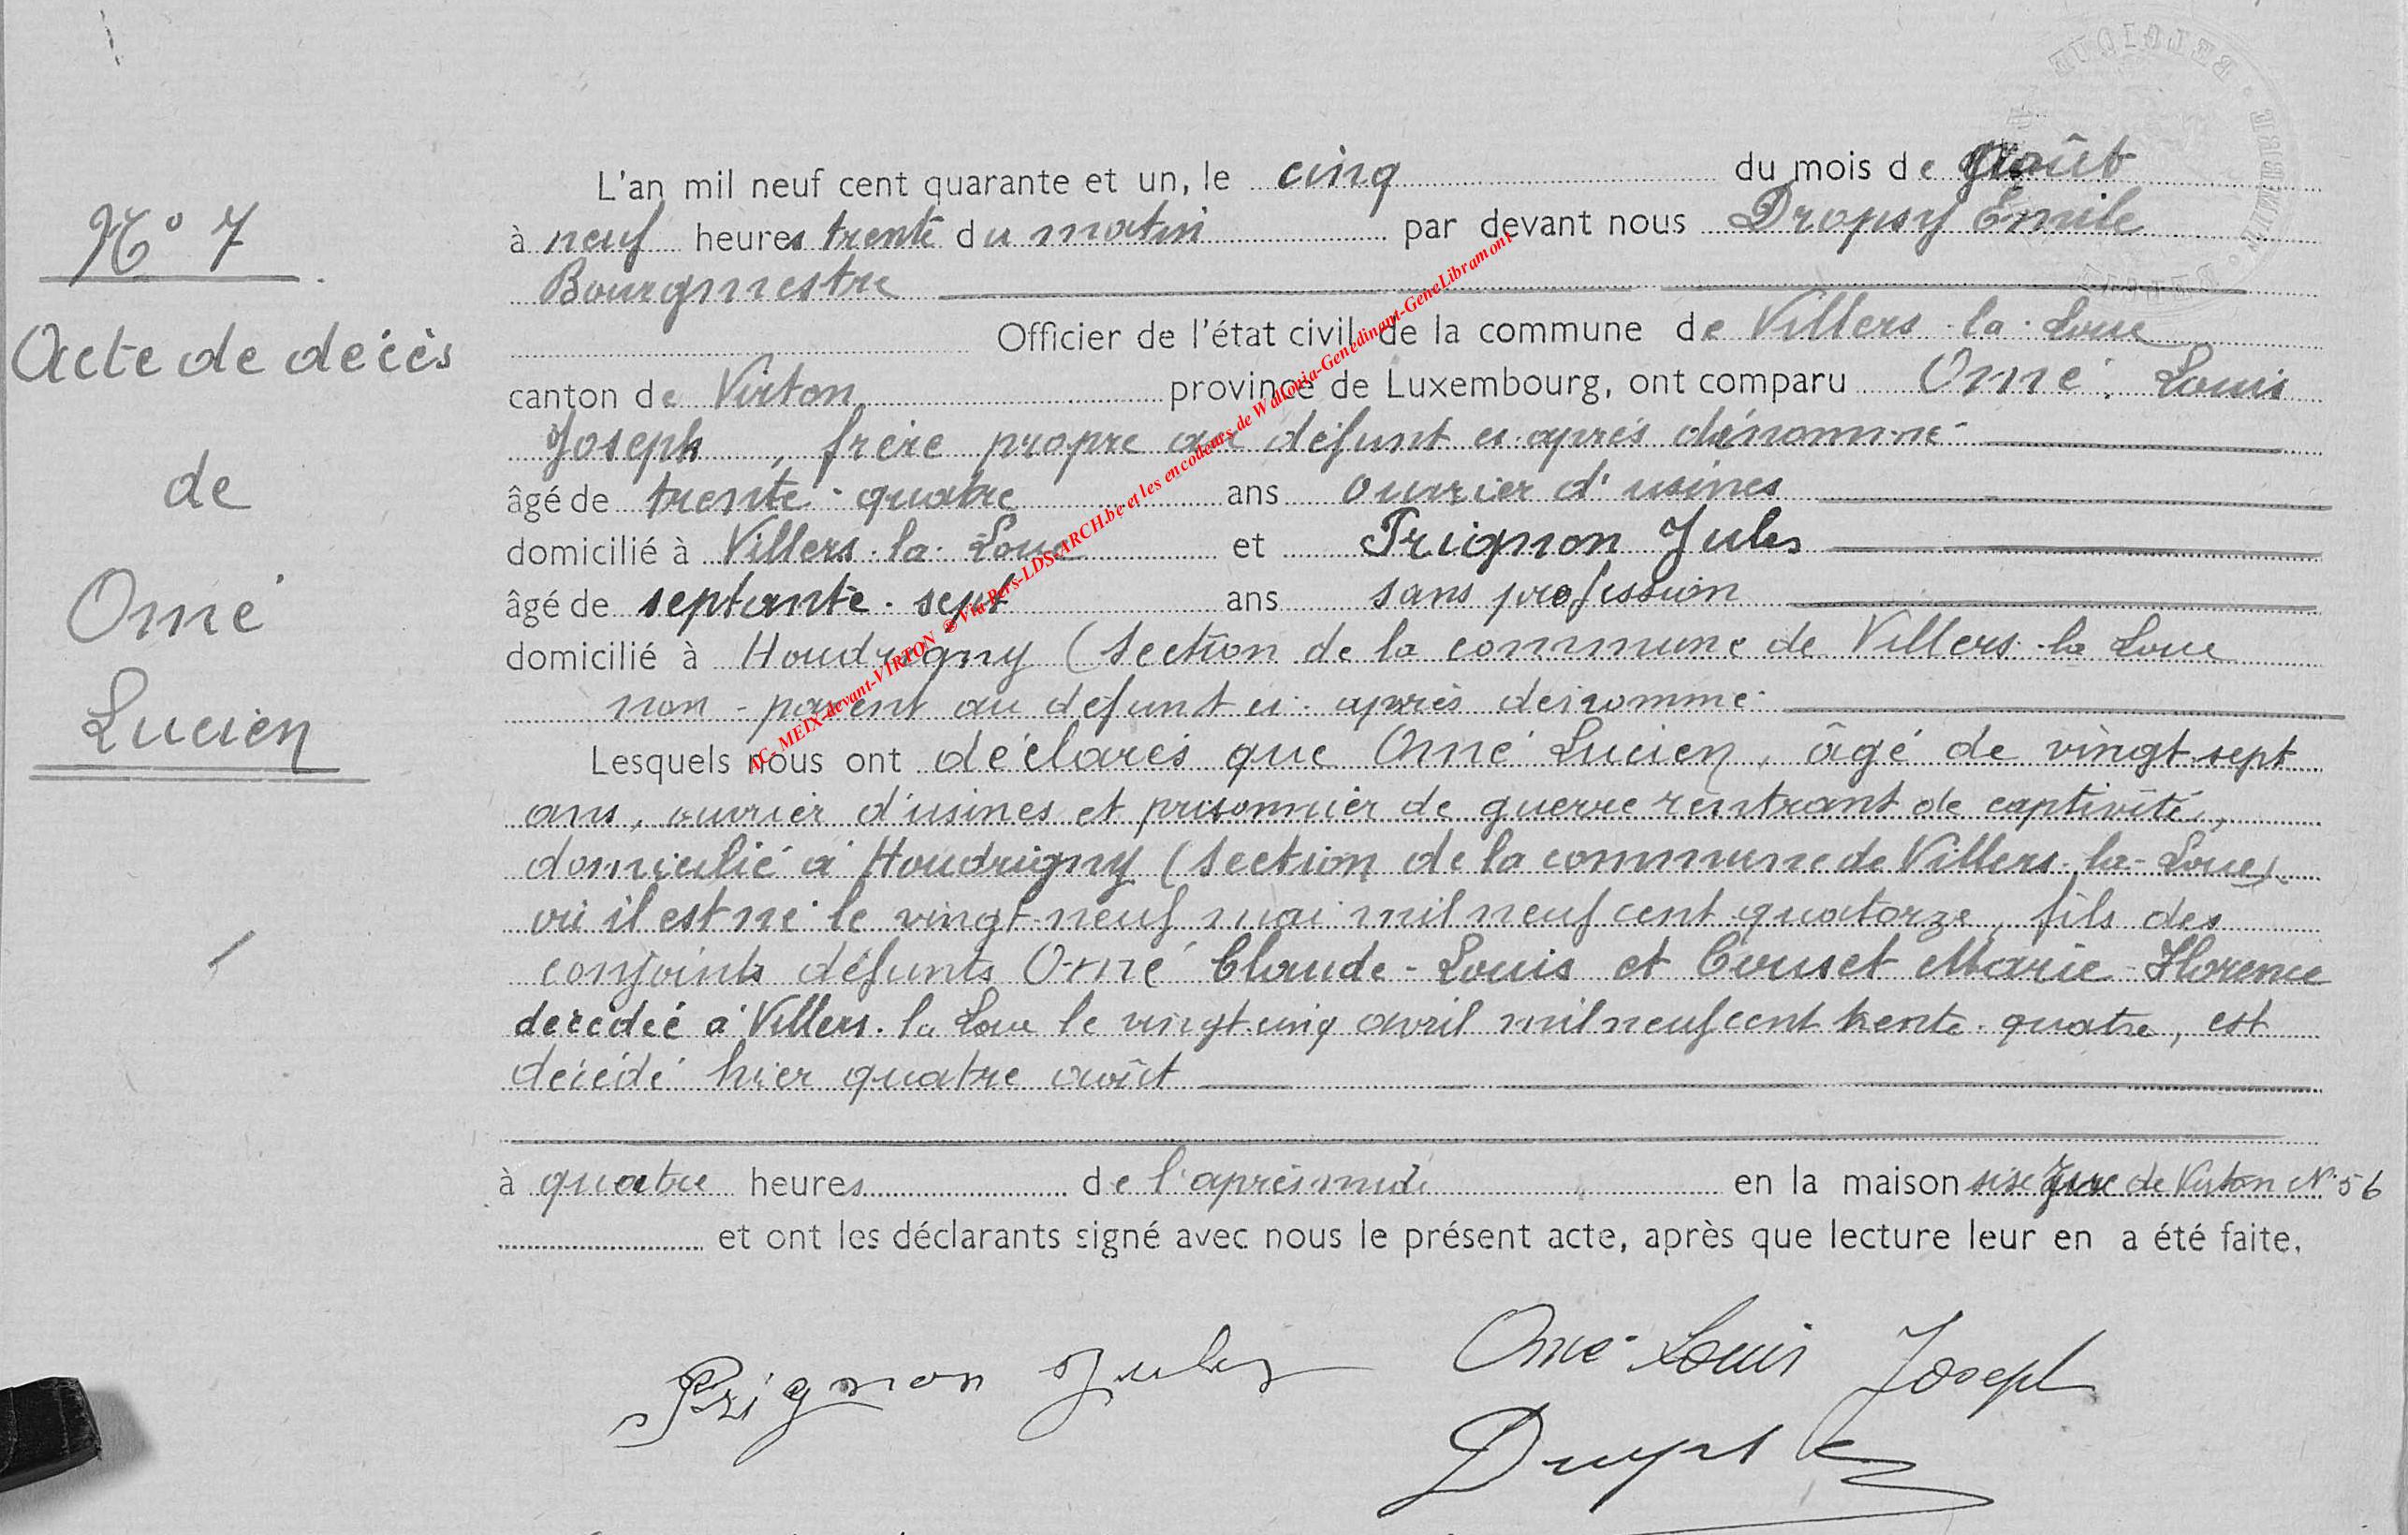 L'an mil neuf cent quarante et un, le cinq du mois de Août
N° 7
à neuf heures trente du matin par devant nous Dropsy Emile
Bourgmestre
Officier de l'état civil de la commune de Villers-la-Loue
Acte de décès
canton de Virton province de Luxembourg, ont comparu Omé Louis
Joseph, frère propre au défunt ci-après dénommé
de
âgé de trente-quatre ans ouvrier d'usines
domicilié à Villers-la-Loue et Prignon Jules
Omé
âgé de septante-sept ans sans profession
domicilié à Houdrigny (section de la commune de Villers-la Loue
non-parent au défunt ci-après dénommé
Lucien
Lesquels nous ont déclarés que Omé Lucien, âgé de vingt-sept
ans, ouvrier d'usines et prisonnier de guerre rentrant de captivité,
domicilié à Houdrigny (section de la commune de Villers-la-Loue)
où il est né le vingt-neuf mai mil neuf cent quatorze, fils des
conjoints défunts Omé Claude-Louis et Marie-Florence
décédée à Villers-la Loue le vingt-cinq avril mil neuf cent trente-quatre, est
décédé hier quatre août
à quatre heures de l'après midi en la maison sise rue de Virton N° 56
et ont les déclarants signé avec nous le présent acte, après que lecture leur en a été faite.
Prignon Jules
Omé Louis Joseph
AC- MEIX-devant-VIRTON ©Via Pers-LDS-ARCH.be et les encodeurs de Wallonia-Genedinant-GeneLibramont